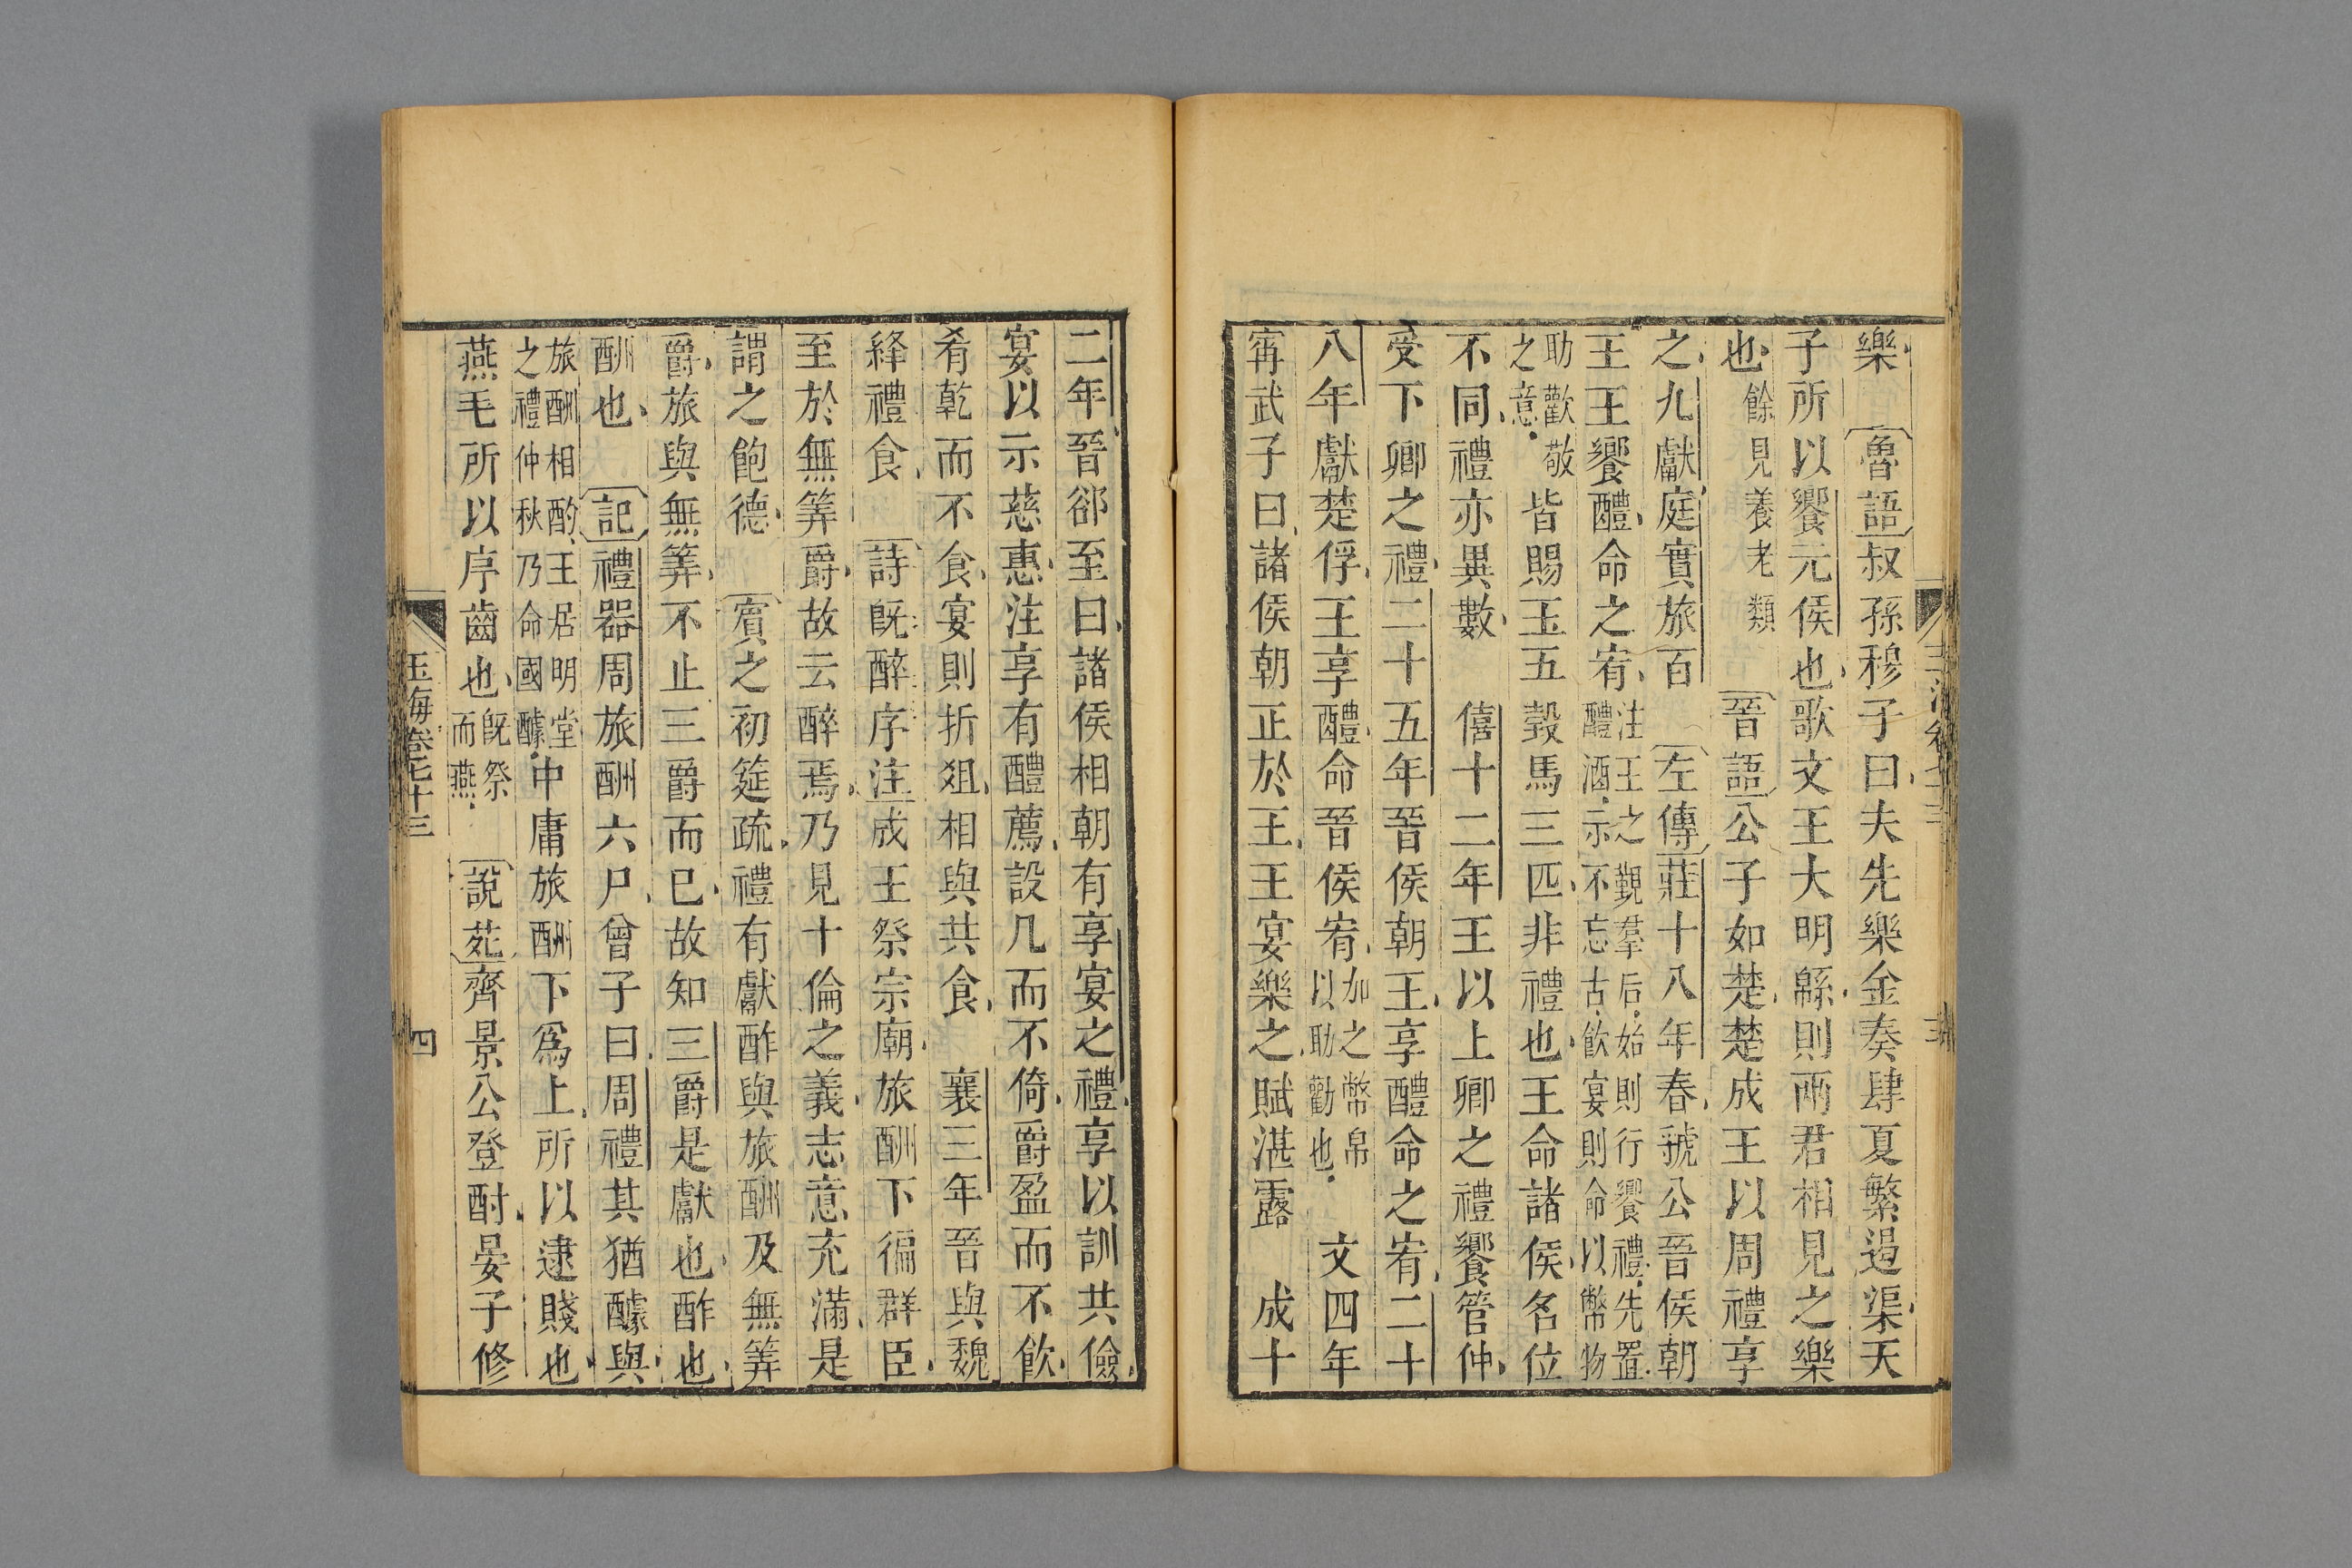 樂魯語叔孫穆子曰夫先樂金奏肆夏繁遏渠天
子所以饗元侯也歌文王大明緜則兩君相見之樂
也餘見養老類晉語公子如楚楚成王以周禮享
之九獻庭實旅百左傳莊十八年春虢公晉侯朝
王王饗醴命之宥注王之覲羣后始則行饗禮先置醴酒示不忘古飲宴則命以幣物
助歡敬之意皆賜玉五瑴馬三匹非禮也王命諸侯名位
不同禮亦異數 僖十二年王以上卿之禮饗管仲
受下卿之禮二十五年晉侯朝王享醴命之宥二十
八年獻楚俘王享醴命晉侯宥加之幣帛以助勸也 文四年
寗武子曰諸侯朝正於王王宴樂之賦湛露 成十
二年晉郤至曰諸侯相朝有享宴之禮享以訓共儉
宴以示慈惠注享有醴薦設几而不倚爵盈而不飲
肴乾而不食宴則折俎相與共食 襄三年晉與魏
絳禮食 詩旣醉序注成王祭宗廟旅酬下徧群臣
至於無筭爵故云醉焉乃見十倫之義志意充滿是
謂之飽德 賓之初筵疏禮有獻酢與旅酬及無筭
爵旅與無筭不止三爵而已故知三爵是獻也酢也
酬也 記禮器周旅酬六尸曾子曰周禮其猶醵與
旅酬相酌王居明堂之禮仲秋乃命國醵中庸旅酬下爲上所以逮賤也
燕毛所以序齒也旣祭而燕 說苑齊景公登酎晏子修
玉海卷七十三
四